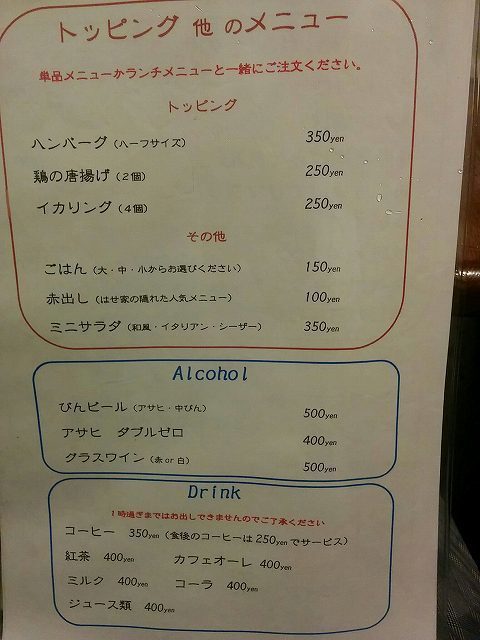 トッピング 他 のメニュー
単品メニューかランチメニューと一緒にご注文ください。
トッピング
ハンバーグ（ハーフサイズ） 350yen
鶏の唐揚げ（２個） 250yen
イカリング（４個） 250yen
その他
ごはん（大・中・小からお選びください） 150yen
赤出し（はせ家の隠れた人気メニュー） 100yen
ミニサラダ（和風・イタリアン・シーザー） 350yen
Alcohol
びんビール（アサヒ・中びん） 500yen
アサヒ ダブルゼロ 400yen
グラスワイン（赤 or 白） 500yen
Drink
１時過ぎまではお出しできませんのでご了承ください
コーヒー 350yen（食後のコーヒーは 250yen でサービス）
紅茶 400yen カフェオーレ 400yen
ミルク 400yen コーラ 400yen
ジュース類 400yen